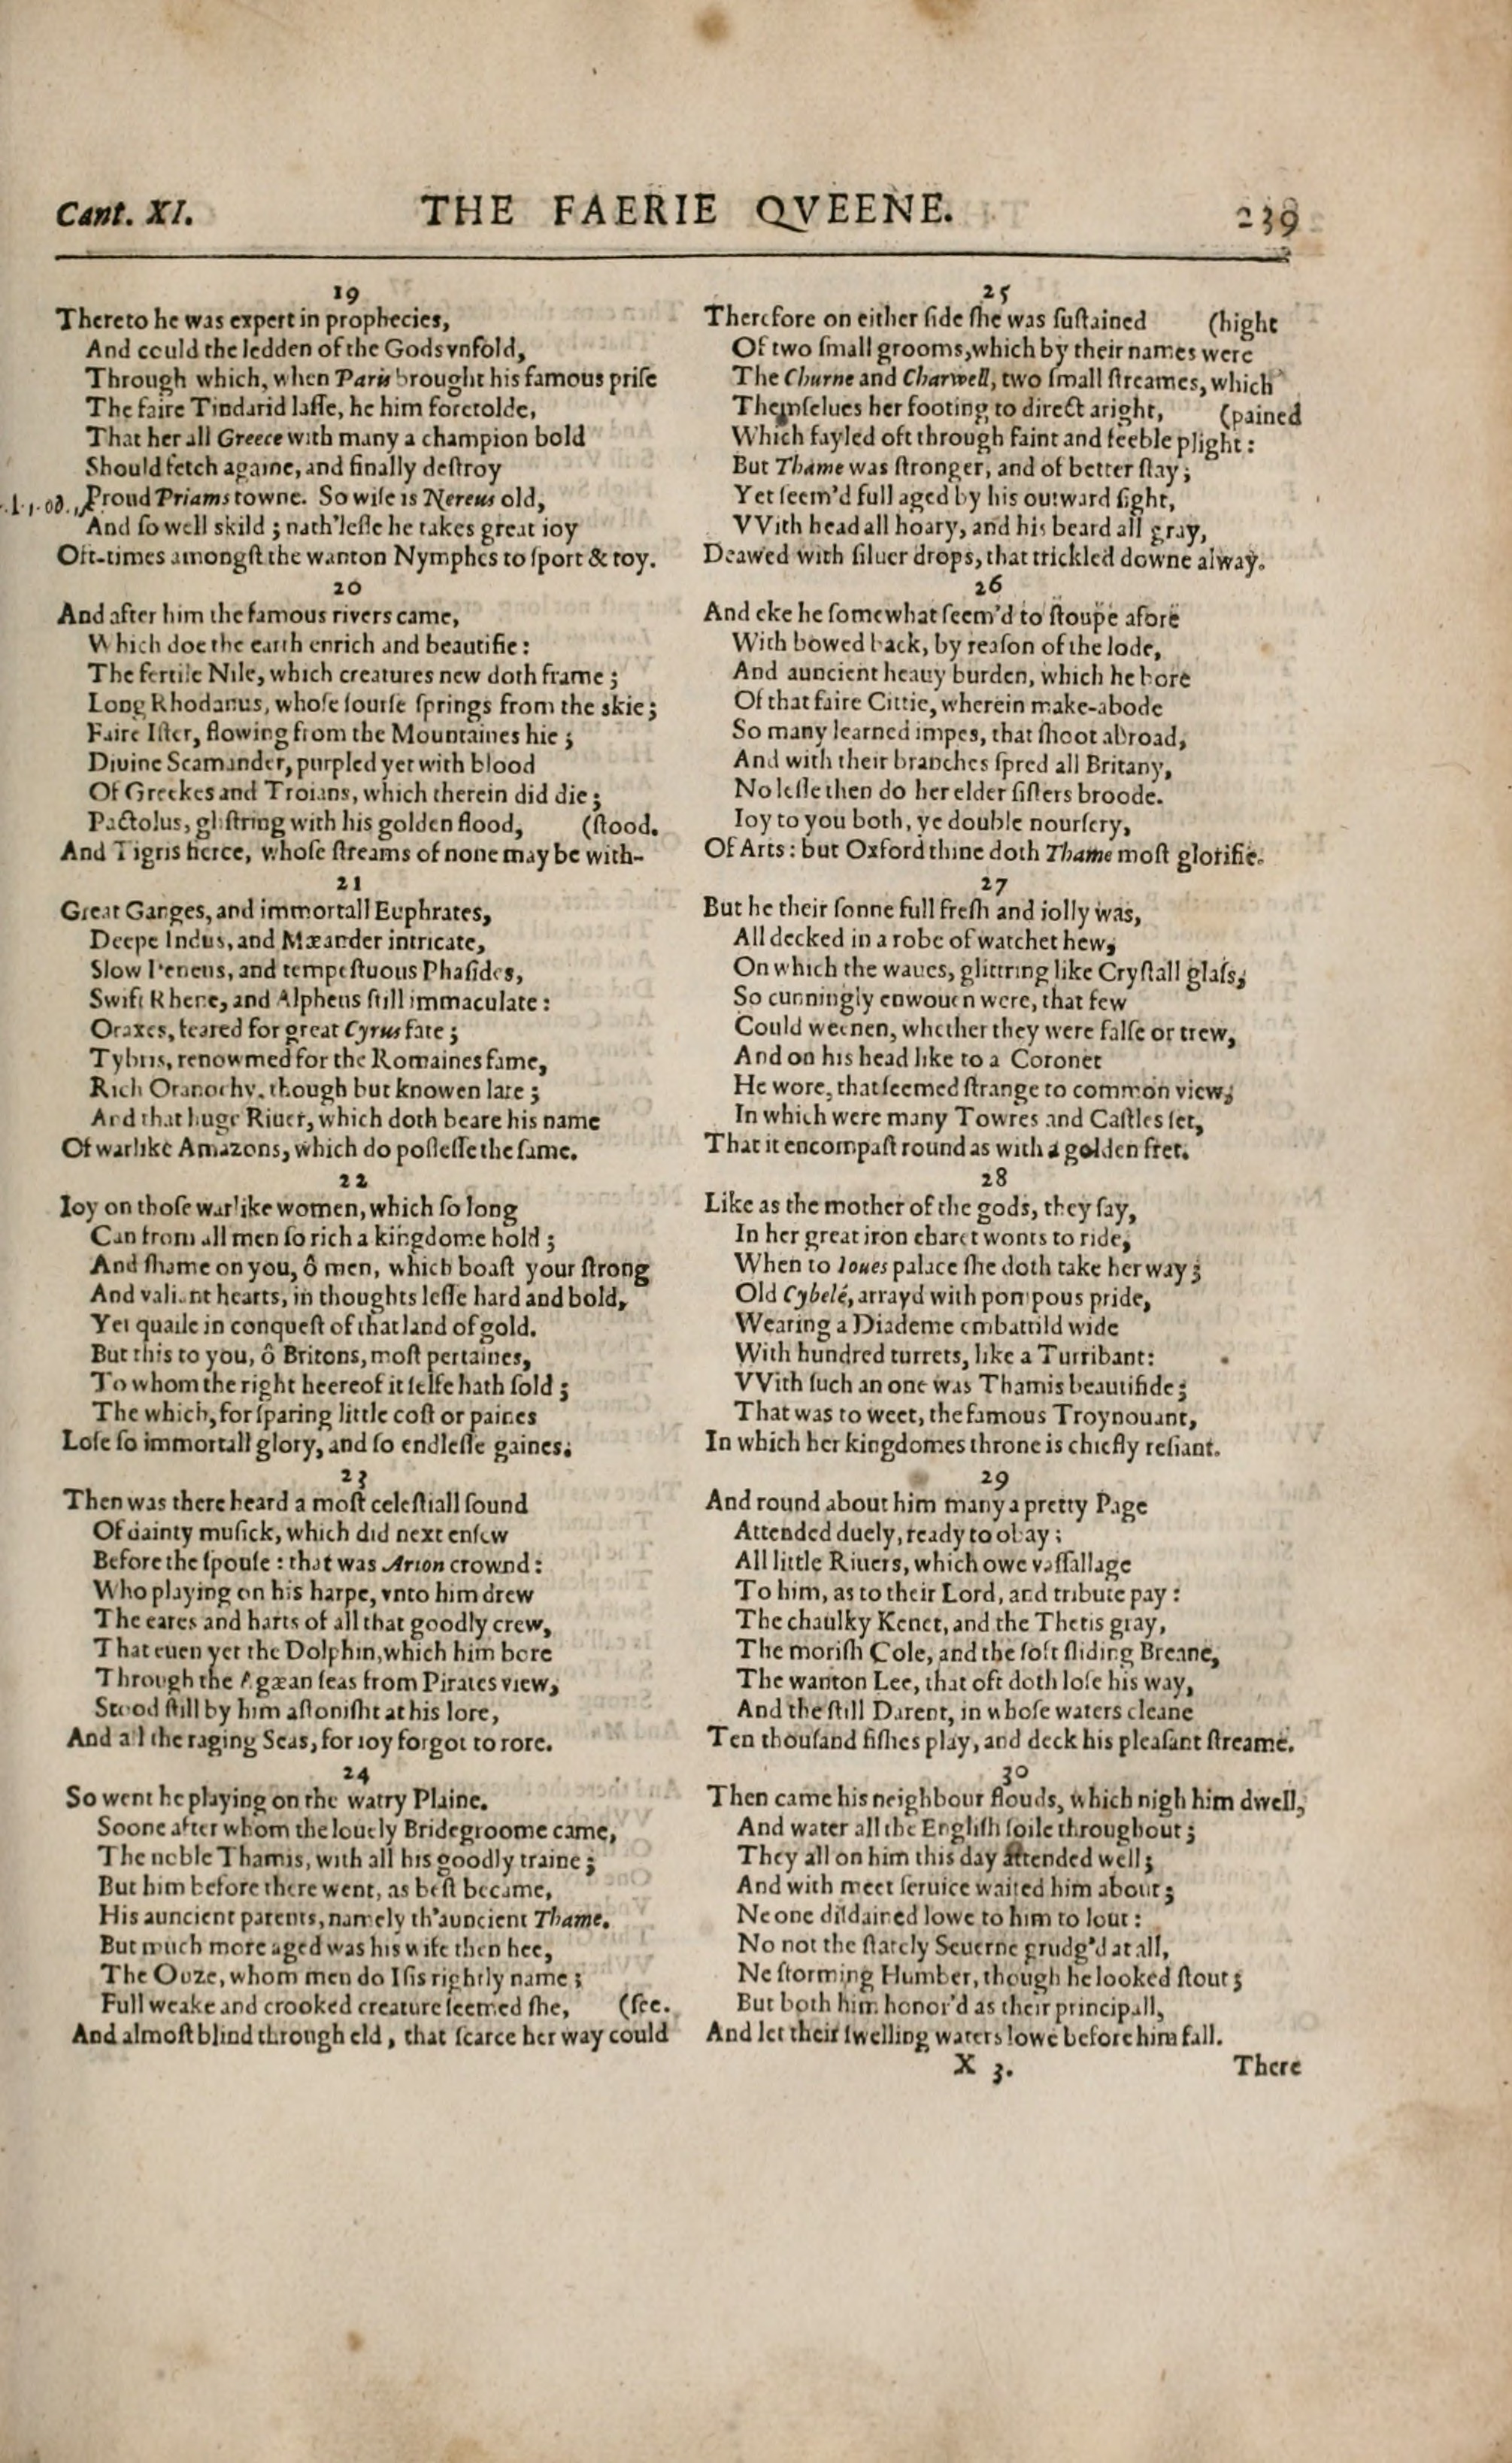 Cant. XI.
THE FAERIE QVEENE.
239
19
Thereto he was expert in prophecies,
And could the ledden of the Gods vnfold,
Through which, when Paris brought his famous priſe
The faire Tindarid laſſe, he him foretolde,
That her all Greece with many a champion bold
Should fetch againe, and finally deſtroy
Proud Priams towne. So wiſe is Nereus old,
And ſo well skild ; nath'leſſe he takes great ioy
Oft-times amongſt the wanton Nymphes to ſport & toy.
20
And after him the famous rivers came,
Which doe the earth enrich and beautifie :
The fertile Nile, which creatures new doth frame ;
Long Rhodanus, whoſe ſourſe ſprings from the skie ;
Faire Iſter, flowing from the Mountaines hie ;
Diuine Scamander, purpled yet with blood
Of Greekes and Troians, which therein did die ;
Pactolus, gliſtring with his golden flood, (ſtood.
And Tigris fierce, whoſe ſtreams of none may be with-
21
Great Ganges, and immortall Euphrates,
Deepe Indus, and Mæander intricate,
Slow Peneus, and tempeſtuous Phaſides,
Swift Rhene, and Alpheus ſtill immaculate :
Oraxes, feared for great Cyrus fate ;
Tybris, renowmed for the Romaines fame,
Rich Oranochy, though but knowen late ;
And that huge Riuer, which doth beare his name
Of warlike Amazons, which do poſſeſſe the ſame.
22
Ioy on thoſe warlike women, which ſo long
Can from all men ſo rich a kingdome hold ;
And ſhame on you, ô men, which boaſt your ſtrong
And valiant hearts, in thoughts leſſe hard and bold,
Yet quaile in conqueſt of that land of gold.
But this to you, ô Britons, moſt pertaines,
To whom the right heereof it ſelfe hath ſold ;
The which, for ſparing little coſt or paines
Loſe ſo immortall glory, and ſo endleſſe gaines.
23
Then was there heard a moſt celeſtiall ſound
Of dainty muſick, which did next enſew
Before the ſpouſe : that was Arion crownd :
Who playing on his harpe, vnto him drew
The eares and harts of all that goodly crew,
That euen yet the Dolphin, which him bore
Through the Ægæan ſeas from Pirates view,
Stood ſtill by him aſtoniſht at his lore,
And all the raging Seas, for ioy forgot to rore.
24
So went he playing on the watry Plaine.
Soone after whom the louely Bridegroome came,
The noble Thamis, with all his goodly traine ;
But him before there went, as beſt became,
His auncient parents, namely th'auncient Thame.
But much more aged was his wife then hee,
The Ouze, whom men do Iſis rightly name ;
Full weake and crooked creature ſeemed ſhe, (ſee.
And almoſt blind through eld, that ſcarce her way could
25
Therefore on either ſide ſhe was ſuſtained (hight
Of two ſmall grooms, which by their names were
The Churne and Charwell, two ſmall ſtreames, which
Themſelues her footing to direct aright, (pained
Which fayled oft through faint and feeble plight :
But Thame was ſtronger, and of better ſtay ;
Yet ſeem'd full aged by his outward ſight,
VVith head all hoary, and his beard all gray,
Deawed with ſiluer drops, that trickled downe alway.
26
And eke he ſomewhat ſeem'd to ſtoupe afore
With bowed back, by reaſon of the lode,
And auncient heauy burden, which he bore
Of that faire Cittie, wherein make-abode
So many learned impes, that ſhoot abroad,
And with their branches ſpred all Britany,
No leſſe then do her elder ſiſters broode.
Ioy to you both, ye double nourſery,
Of Arts : but Oxford thine doth Thame moſt glorifie.
27
But he their ſonne full freſh and iolly was,
All decked in a robe of watchet hew,
On which the waues, glittring like Cryſtall glaſs,
So cunningly enwouen were, that few
Could weenen, whether they were falſe or trew,
And on his head like to a Coronet
He wore, that ſeemed ſtrange to common view,
In which were many Towres and Caſtles ſet,
That it encompaſt round as with a golden fret.
28
Like as the mother of the gods, they ſay,
In her great iron charet wonts to ride,
When to Ioues palace ſhe doth take her way ;
Old Cybelé, arrayd with pompous pride,
Wearing a Diademe embattild wide
With hundred turrets, like a Turribant :
VVith ſuch an one was Thamis beautifide ;
That was to weet, the famous Troynouant,
In which her kingdomes throne is chiefly reſiant.
29
And round about him many a pretty Page
Attended duely, ready to obay ;
All little Riuers, which owe vaſſallage
To him, as to their Lord, and tribute pay :
The chaulky Kenet, and the Thetis gray,
The moriſh Cole, and the ſoft ſliding Breane,
The wanton Lee, that oft doth loſe his way,
And the ſtill Darent, in whoſe waters cleane
Ten thouſand fiſhes play, and deck his pleaſant ſtreame.
30
Then came his neighbour flouds, which nigh him dwell,
And water all the Engliſh ſoile throughout ;
They all on him this day attended well ;
And with meet ſeruice waited him about ;
Ne one diſdained lowe to him to lout :
No not the ſtately Seuerne grudg'd at all,
Ne ſtorming Humber, though he looked ſtout ;
But both him honor'd as their principall,
And let their ſwelling waters lowe before him fall.
X 3.
There